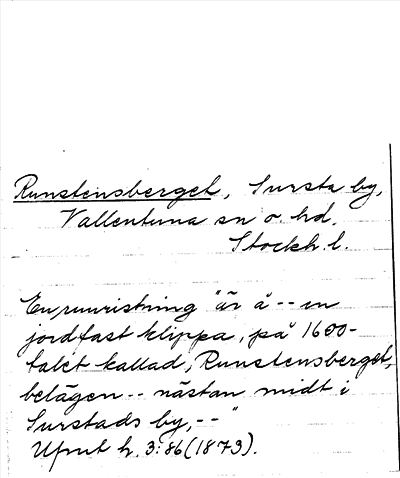 Runstensberget, Sursta by,
Vallentuna sn o. hd.
Stockh. l.
En runristning "är å -- en
jordfast klippa, på 1600-
talet kallad, Runstensberget,
belägen -- nästan midt i
Surstads by, -- "
Upnt h. 3:86 (1873).